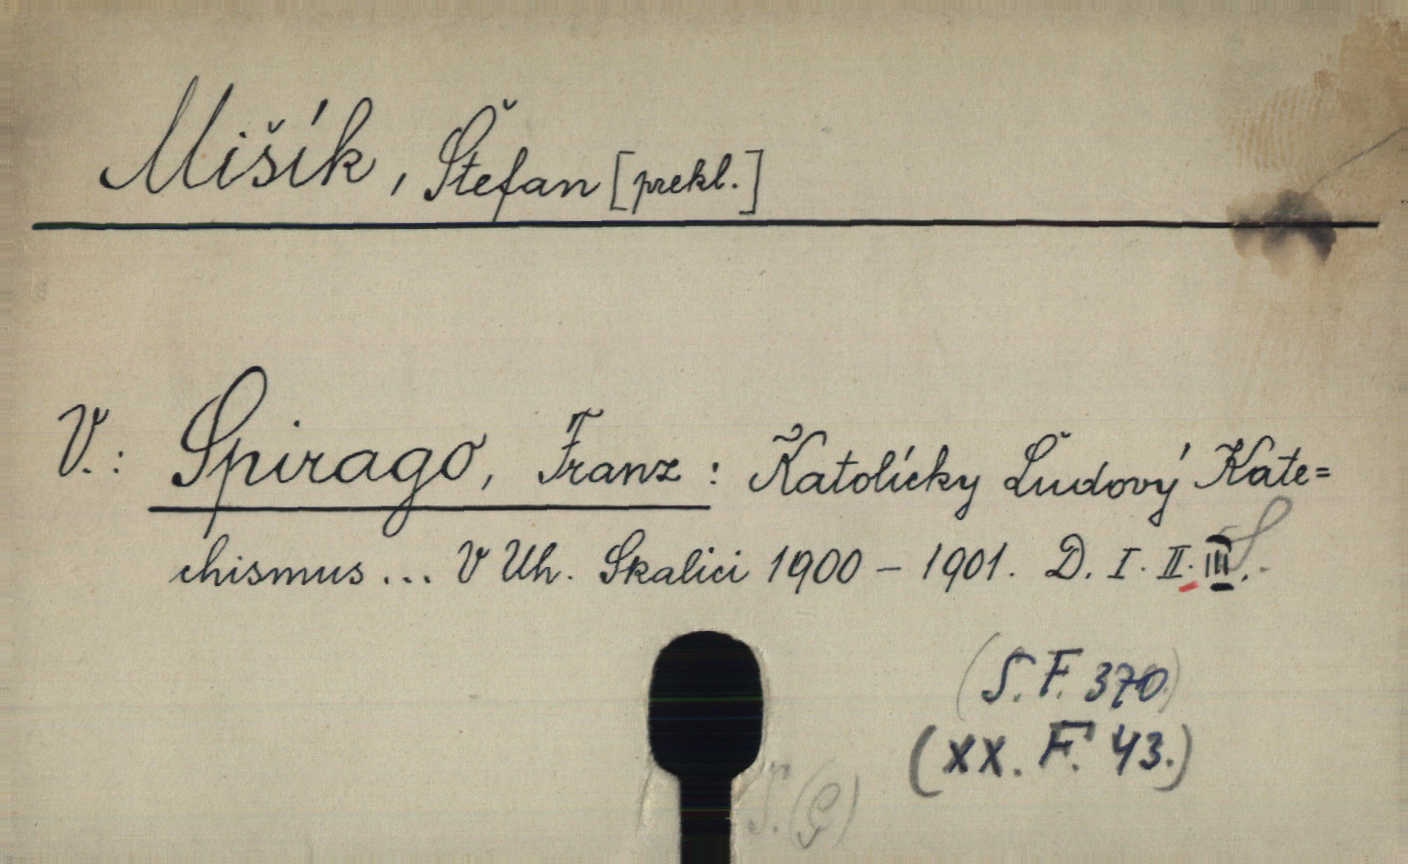 Mišík, Štefan [prekl.]
V.: Spirago, Franz: Katolícky Ľudový Kate=
chismus... V Uh. Skalici 1900 – 1901. D. I. II. III.
(S. F. 370)
(XX. F. 43.)
S. (G)